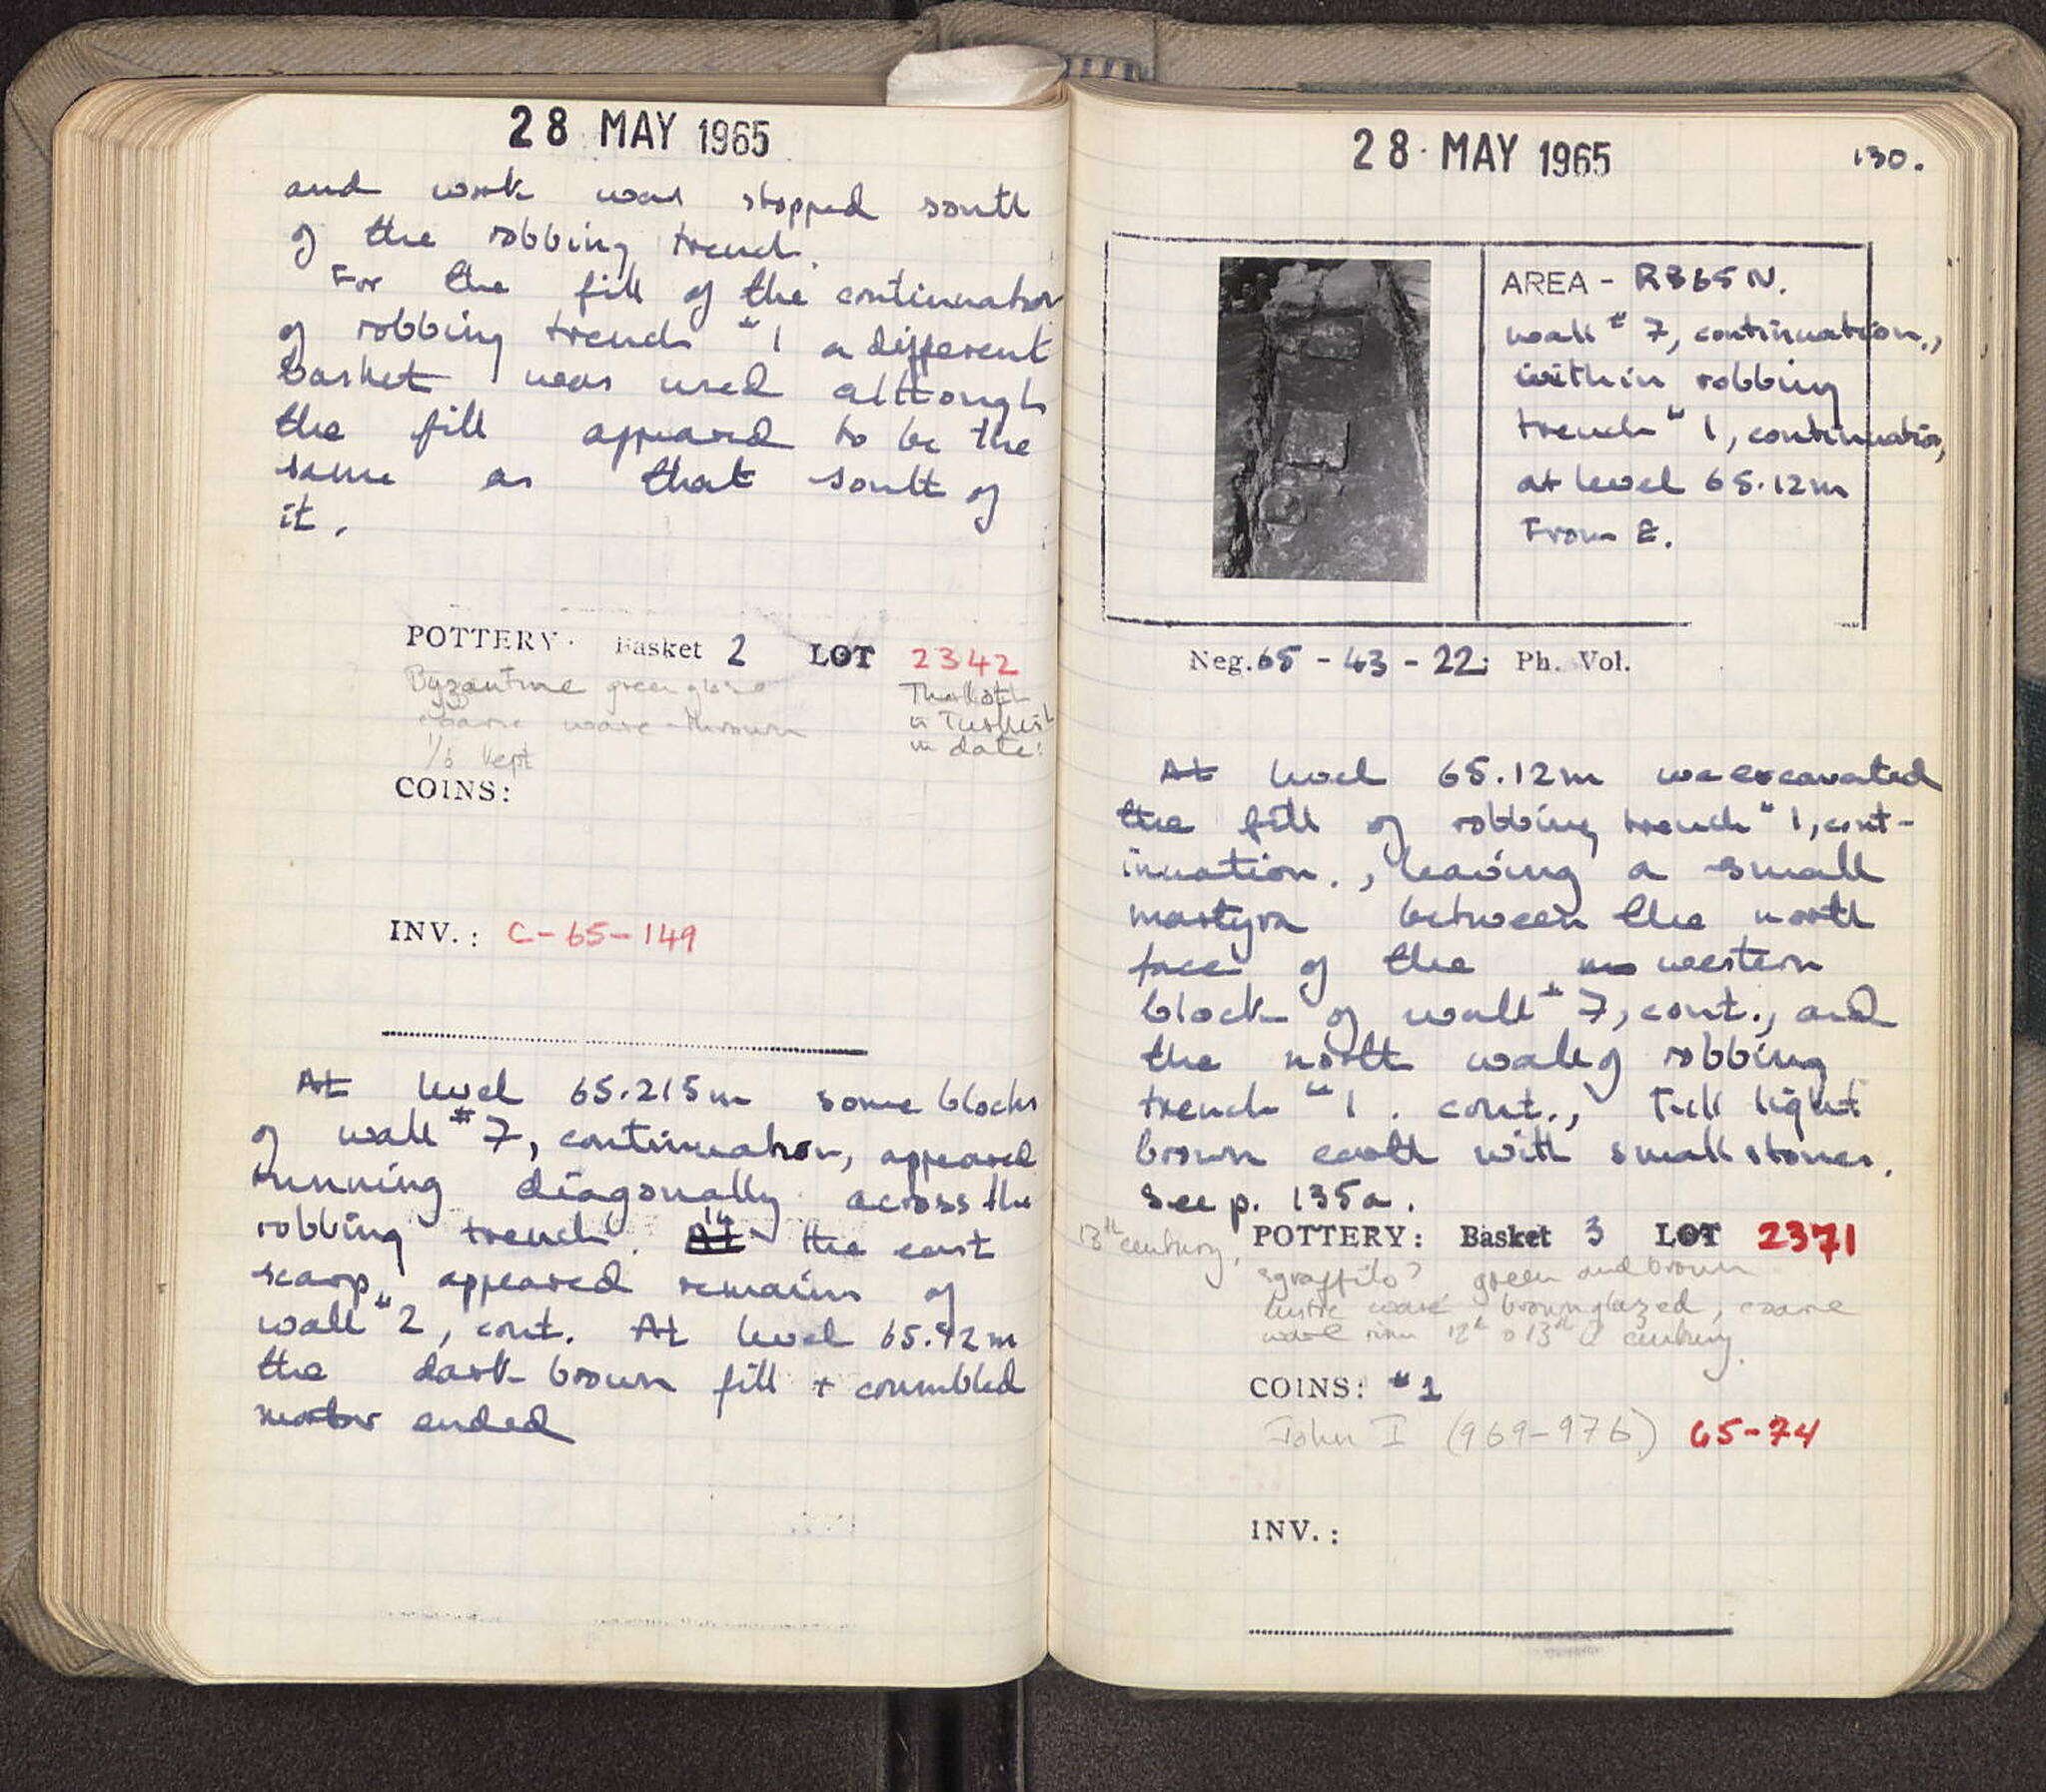 28 MAY 1965
and work was stopped south
of the robbing trench.
For the fill of the continuation
of robbing trench #1 a different
basket was used although
the fill appeared to be the
same as that south of
it.
POTTERY. Basket 2 LOT 2342
Byzantine green glaze
coarse ware - thrown
1/3 kept
in Turkish
in date!
COINS:
INV.: C-65-149
At level 65.215m some blocks
of wall #7, continuation, appeared
running diagonally across the
robbing trench. In the east
scarp, appeared remains of
wall #2, cont. At level 65.12m
the dark brown fill + crumbled
mortar ended
28 MAY 1965 130.
AREA - R365N.
wall #7, continuation.,
within robbing
trench #1, continuation,
at level 65.12m
From E.
Neg. 65 - 43 - 22; Ph. Vol.
At level 65.12m we excavated
the fill of robbing trench #1, cont-
inuation., leaving a small
martyra between the north
face of the western
block of wall #7, cont., and
the north wall of robbing
trench #1. cont., Fill light
brown earth with small stones.
See p. 135a.
13th century. POTTERY: Basket 3 LOT 2371
sgraffito? green and brown
lustre ware brown glazed, coarse
ware rim 12th o 13th C century.
COINS: #1
John I (969-976) 65-74
INV.: